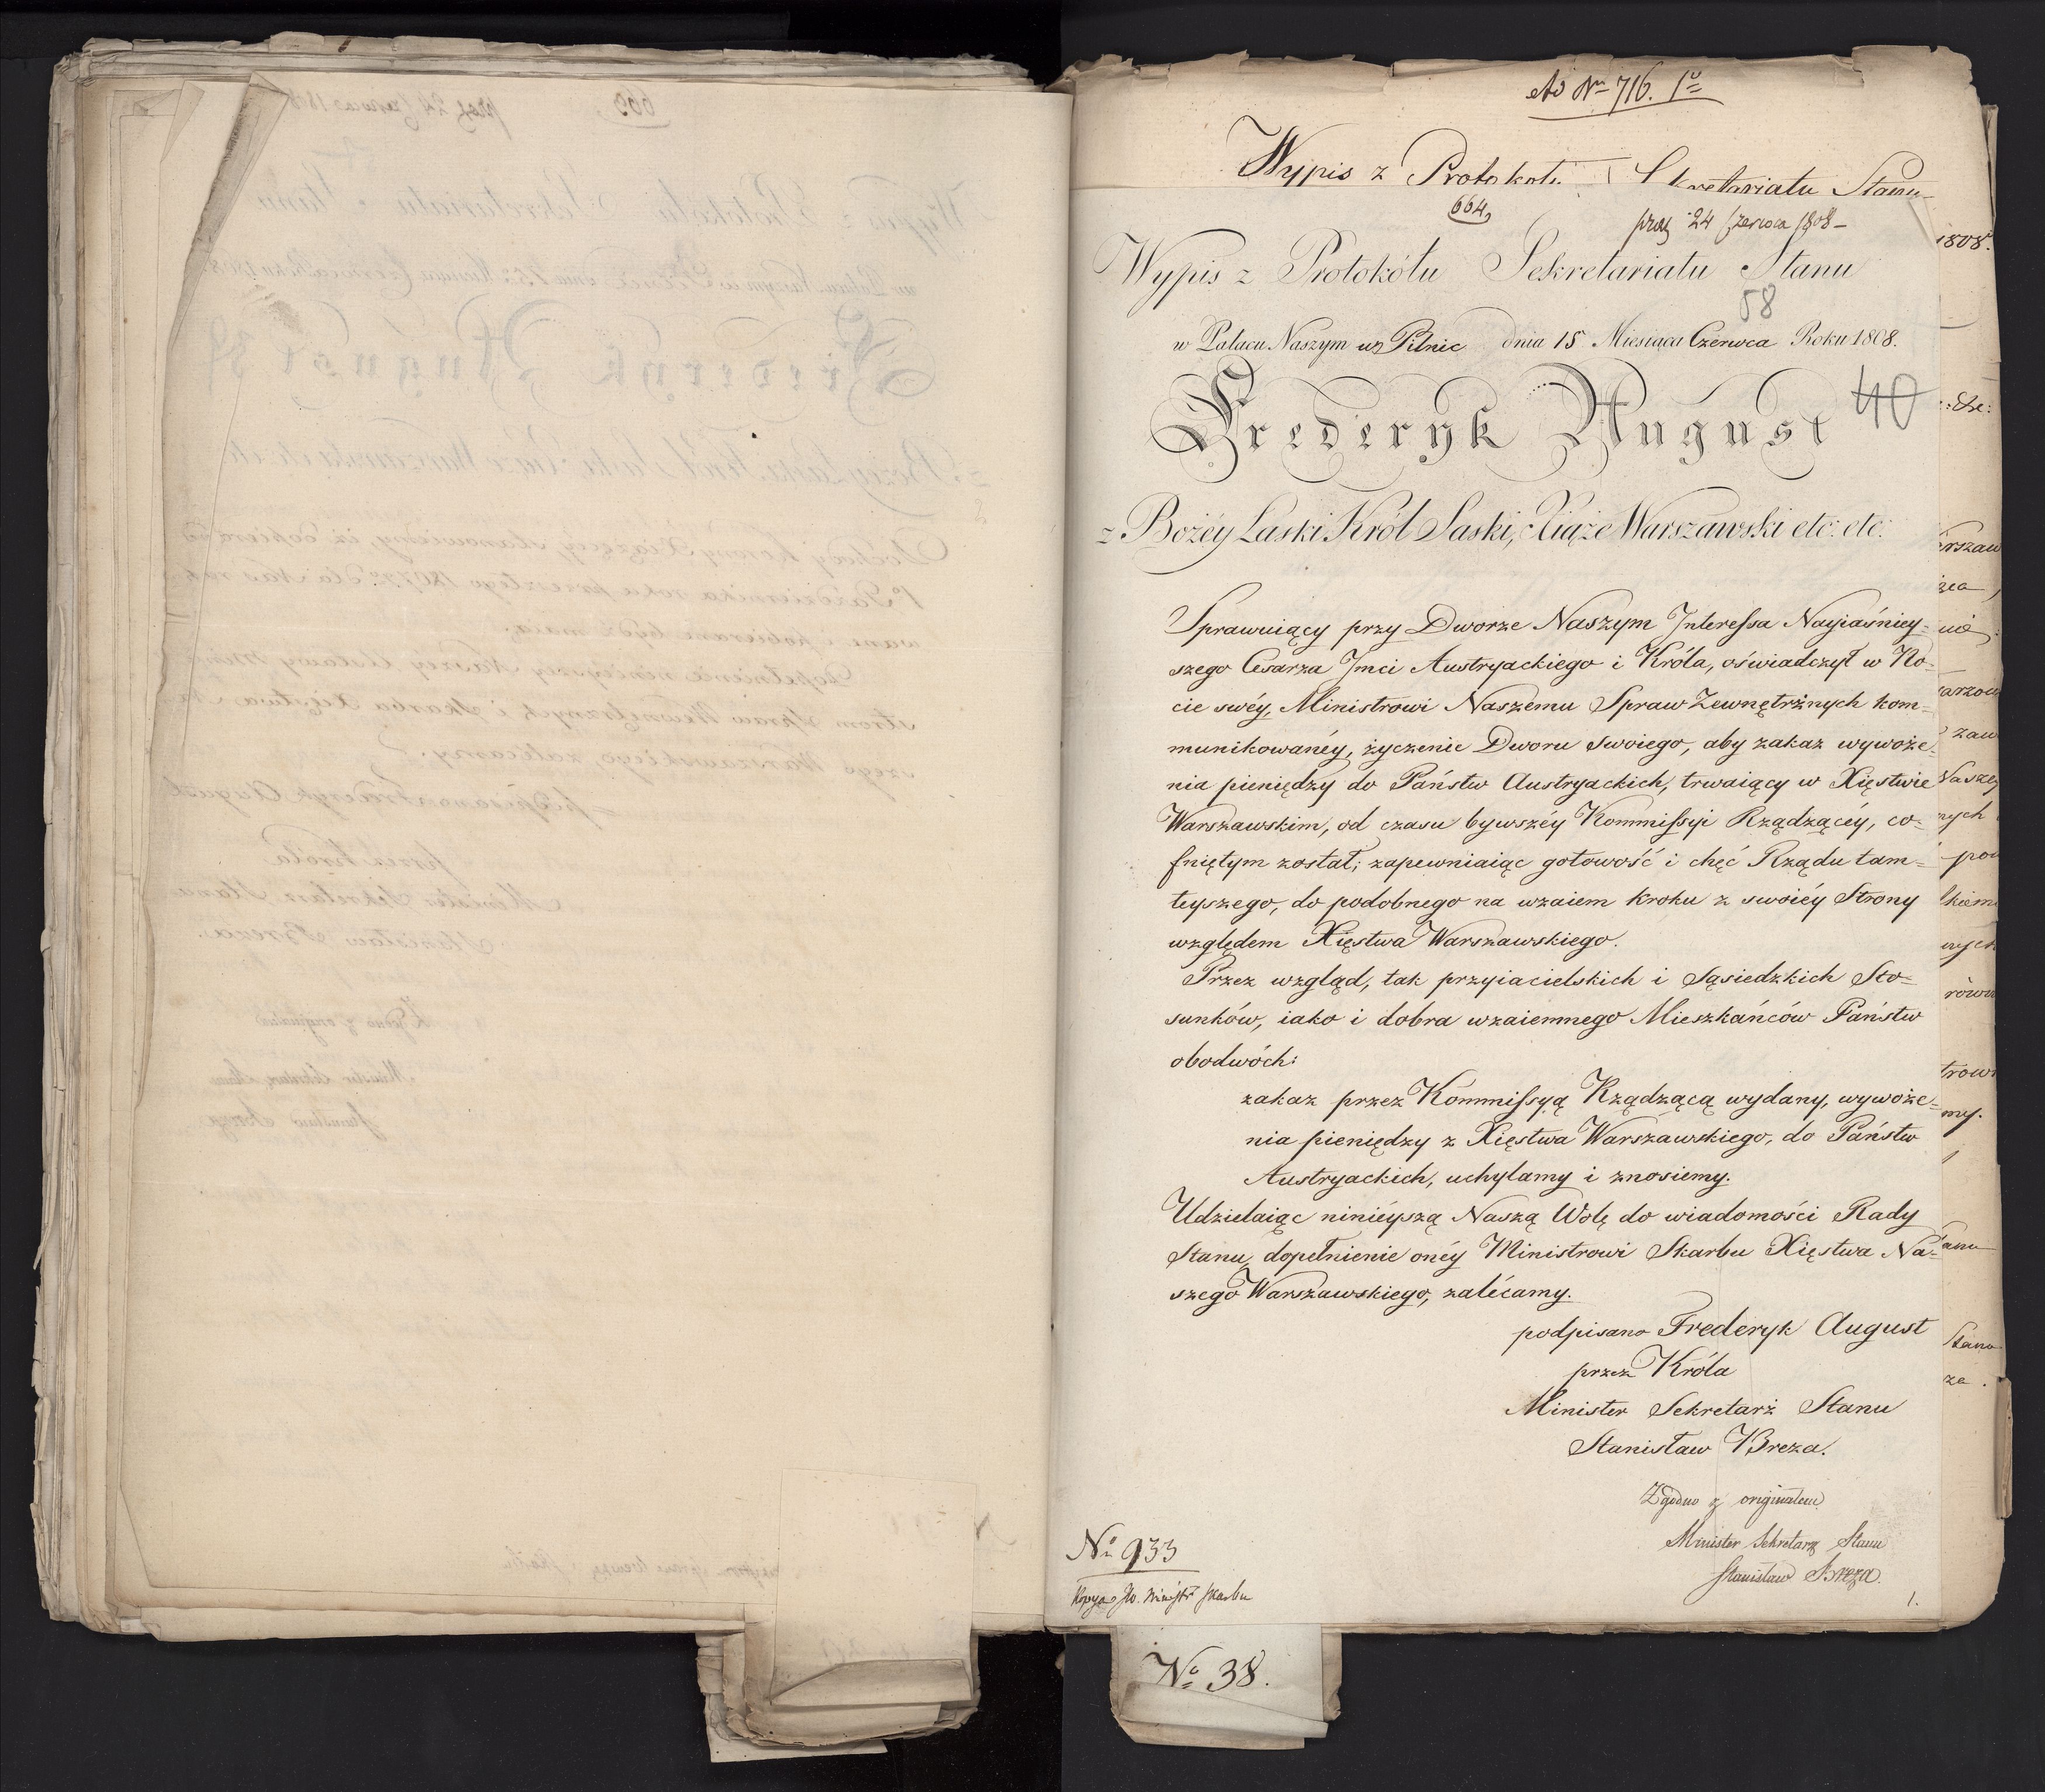 Ad Nro 716. 1o
Wypis z Protokołu Sekretariatu Stanu
664,
praes 24 Czerwca 1808 –
Wypis z Protokółu Sekretariatu Stanu
58
w Pałacu Naszym w Pilnic dnia 15 Miesiąca Czerwca Roku 1808.
Frederyk August
40
z Bożéy Łaski Król Saski, Xiąże Warszawski etc: etc:
Sprawuiący przy Dworze Naszym Interessa Nayiaśniey=
szego Cesarza Jmci Austryackiego i Króla, oświadczył w No=
cie swéy, Ministrowi Naszemu Spraw Zewnętrznych kom=
munikowanéy, życzenie Dworu swoiego, aby zakaz wywoże=
nia pieniędzy do Państw Austryackich, trwaiący w Xięstwie
Warszawskim, od czasu bywszéy Kommissyi Rządzącéy, co=
fniętym został; zapewniaiąc gotowość i chęć Rządu tam=
teyszego, do podobnego na wzaiem kroku z swoiéy Strony
względem Xięstwa Warszawskiego.
Przez wzgląd, tak przyiacielskich i Sąsiedzkich Sto=
sunków, iako i dobra wzaiemnego Mieszkańców Państw
obodwóch:
zakaz przez Kommissyą Rządzącą wydany, wywoże=
nia pieniędzy z Xięstwa Warszawskiego, do Państw
Austryackich, uchylamy i znosiemy.
Udzielaiąc niniéyszą Naszą Wolę do wiadomości Rady
Stanu, dopełnienie onéy Ministrowi Skarbu Xięstwa Na=
szego Warszawskiego, zalécamy.
podpisano Frederyk August
przez Króla
Minister Sekretarz Stanu
Stanisław Breza.
Zgodno z originałem
Minister Sekretarz Stanu
Stanisław Breza.
1.
No 933
Kopya Jw. Ministr Skarbu
No 38.
1808.